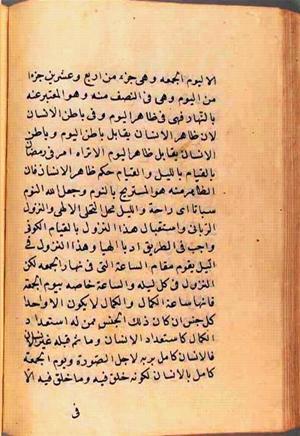 الا ليوم الجمعه وهى جزء من اربع وعشرين جزءا
من اليوم وهى فى النصف منه وهو المعبر عنه
بالنهار فهى فى ظاهر اليوم وفى باطن الانسان
لان ظاهر الانسان يقابل باطن اليوم وباطن
الانسان يقابل ظاهر اليوم الا تراه امر فى رمضان
بالقيام بالليل والقيام حكم ظاهر الانسان فان
الظاهر منه هو المستريح بالنوم وجعل الله النوم
سباتا اى راحة والليل محل التجلى الالهى والنزول
الربانى واستقبال هذا النزول بالقيام الكونى
واجب فى الطريق ادبا الهيا وهذا النزول فى
الليل يقوم مقام الساعة التى فى نهار الجمعه لكن
النزول فى كل ليله والساعة خاصه بيوم الجمعه
فانها ساعة الكمال والكمال لا يكون الا واحدا
كل جنس ان كان ذلك الجنس ممن له استعداد
الكمال كاستعداد الانسان وما ثم قبله غير الانسان
فالانسان كامل بربه لاجل الصورة ويوم الجمعة
كامل بالانسان لكونه خلق فيه وما خلق فيه الا
فى